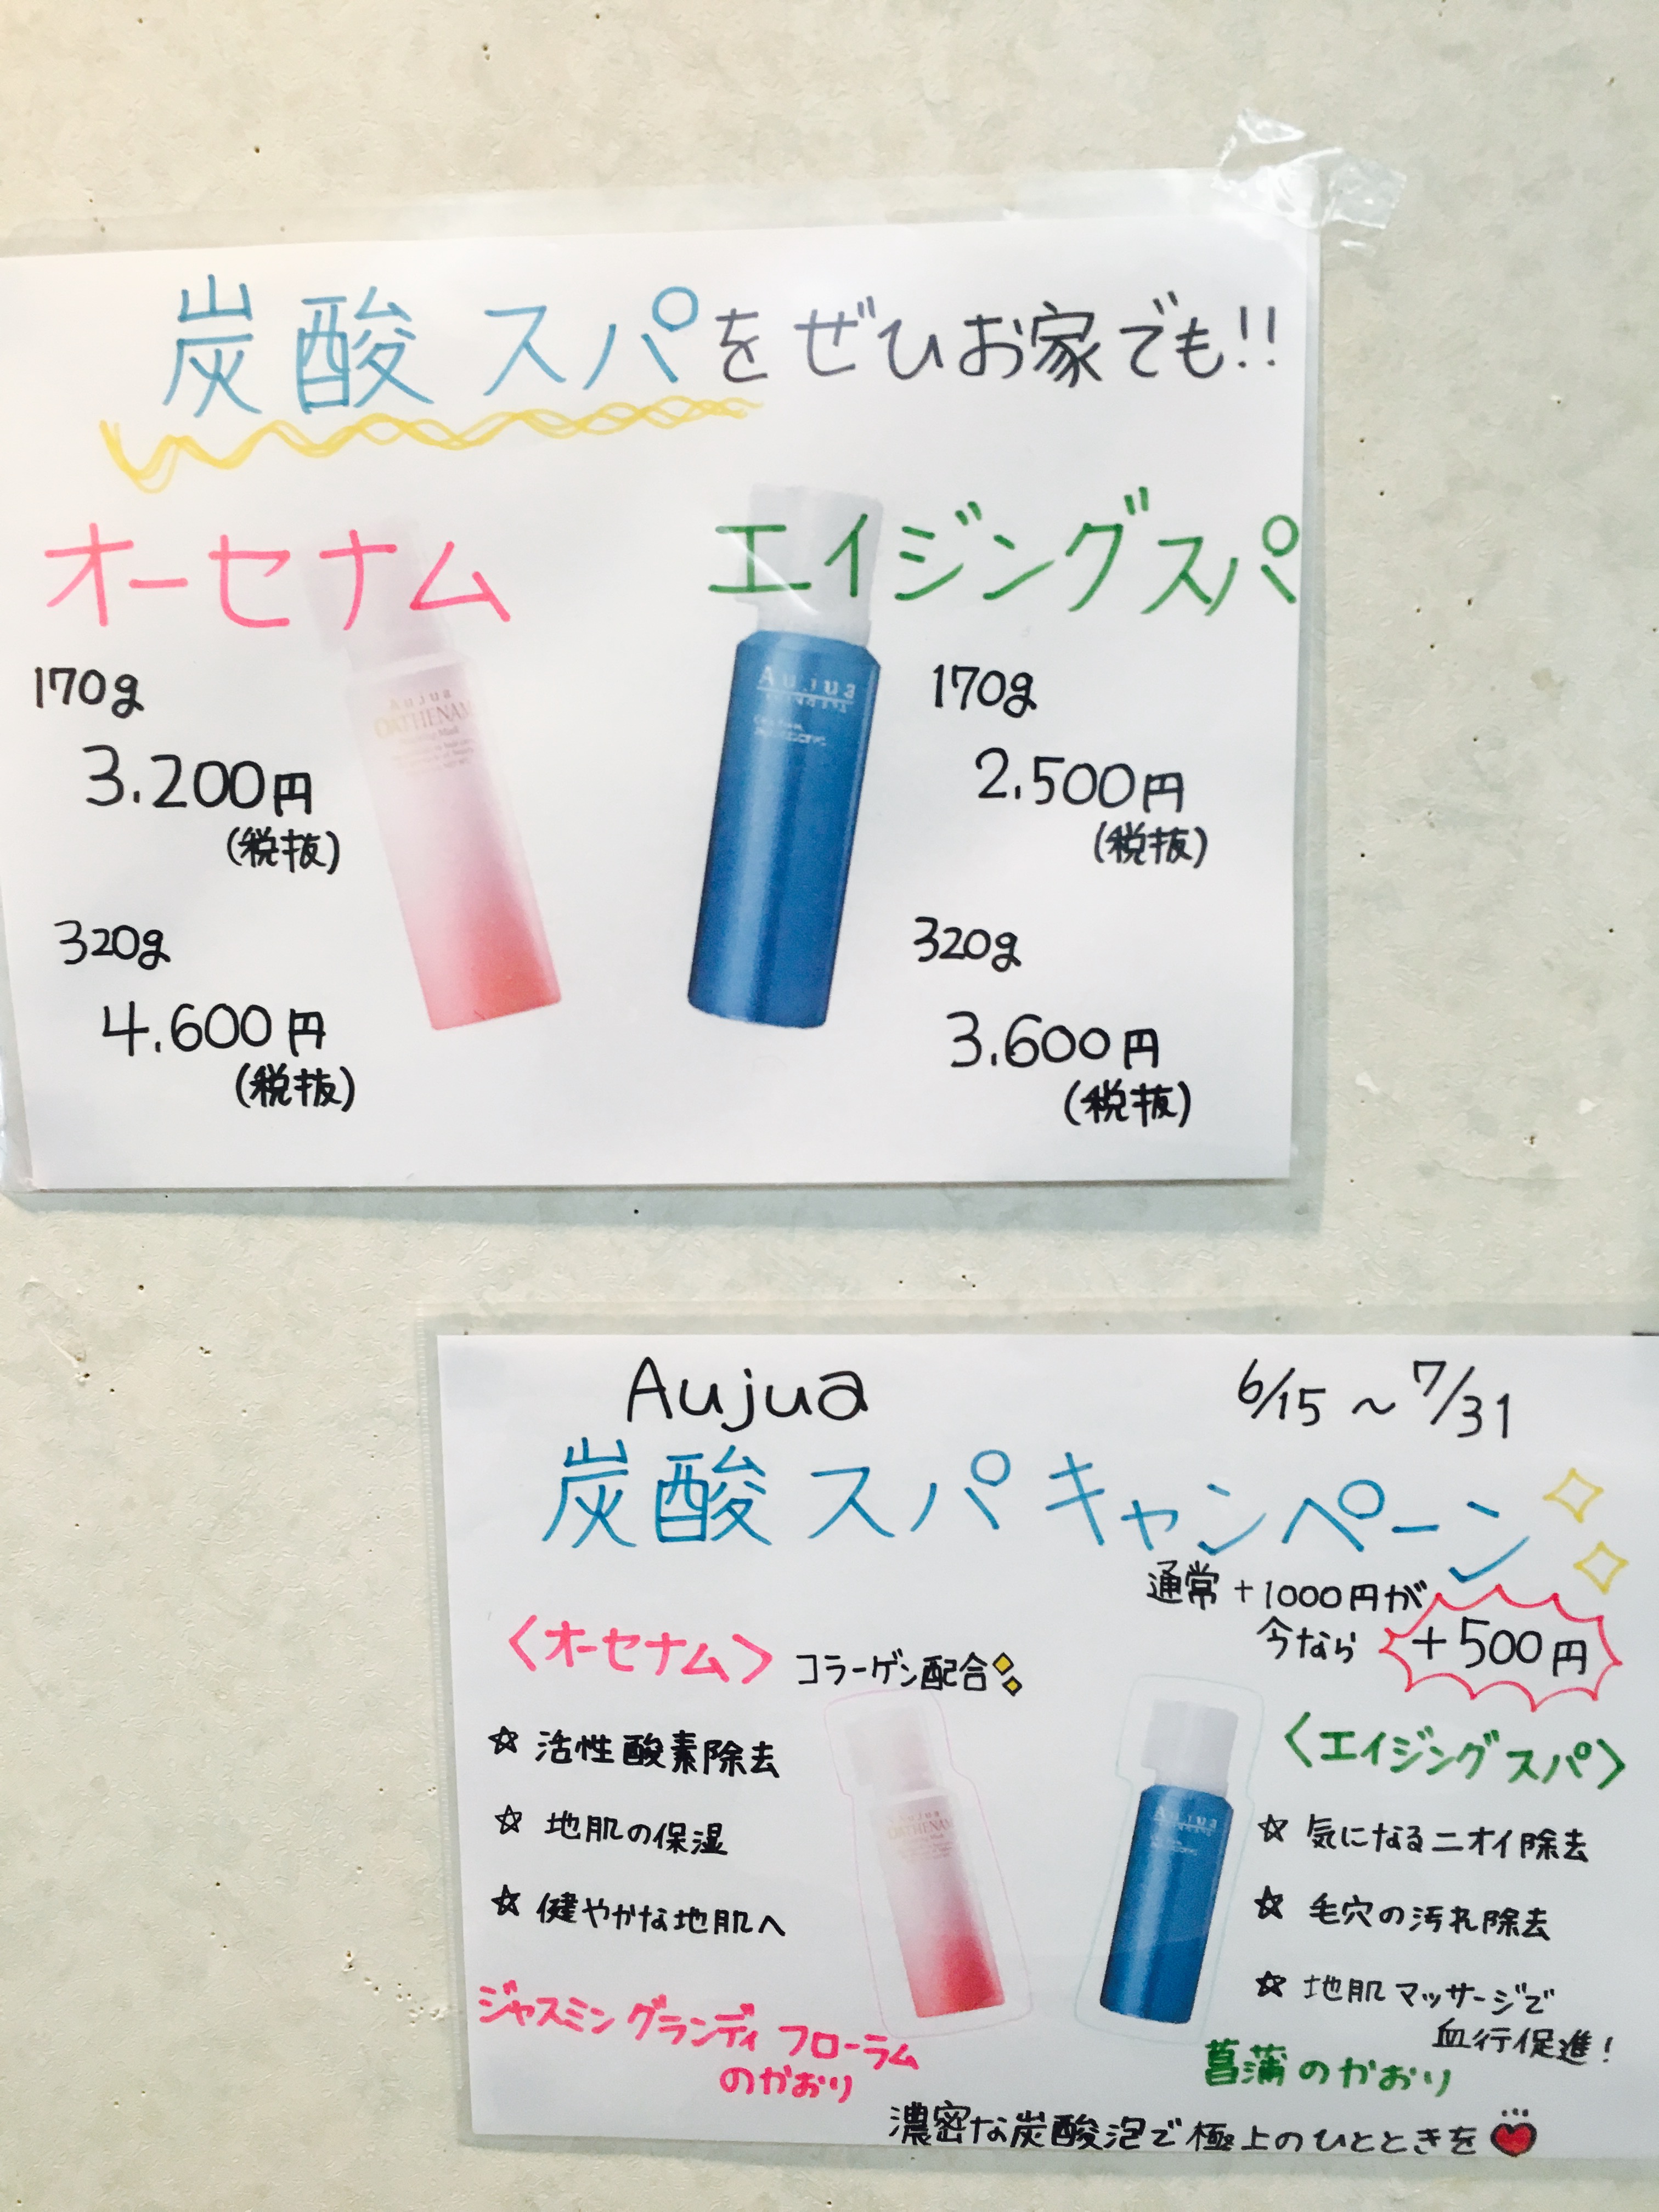 炭酸スパをぜひお家でも!!
オーセナム
170g
3.200円
(税抜)
320g
4.600円
(税抜)
Aujua
エイジングスパ
Aujua
170g
2.500円
(税抜)
320g
3.600円
(税抜)
Aujua
6/15～7/31
炭酸スパキャンペーン
通常+1000円が
今なら
+500円
〈オーセナム〉
コラーゲン配合
☆ 活性酸素除去
☆ 地肌の保湿
☆ 健やかな地肌へ
ジャスミングランディフローラム
のかおり
Aujua
Aujua
〈エイジングスパ〉
☆ 気になるニオイ除去
☆ 毛穴の汚れ除去
☆ 地肌マッサージで
血行促進!
菖蒲のかおり
濃密な炭酸泡で極上のひとときを